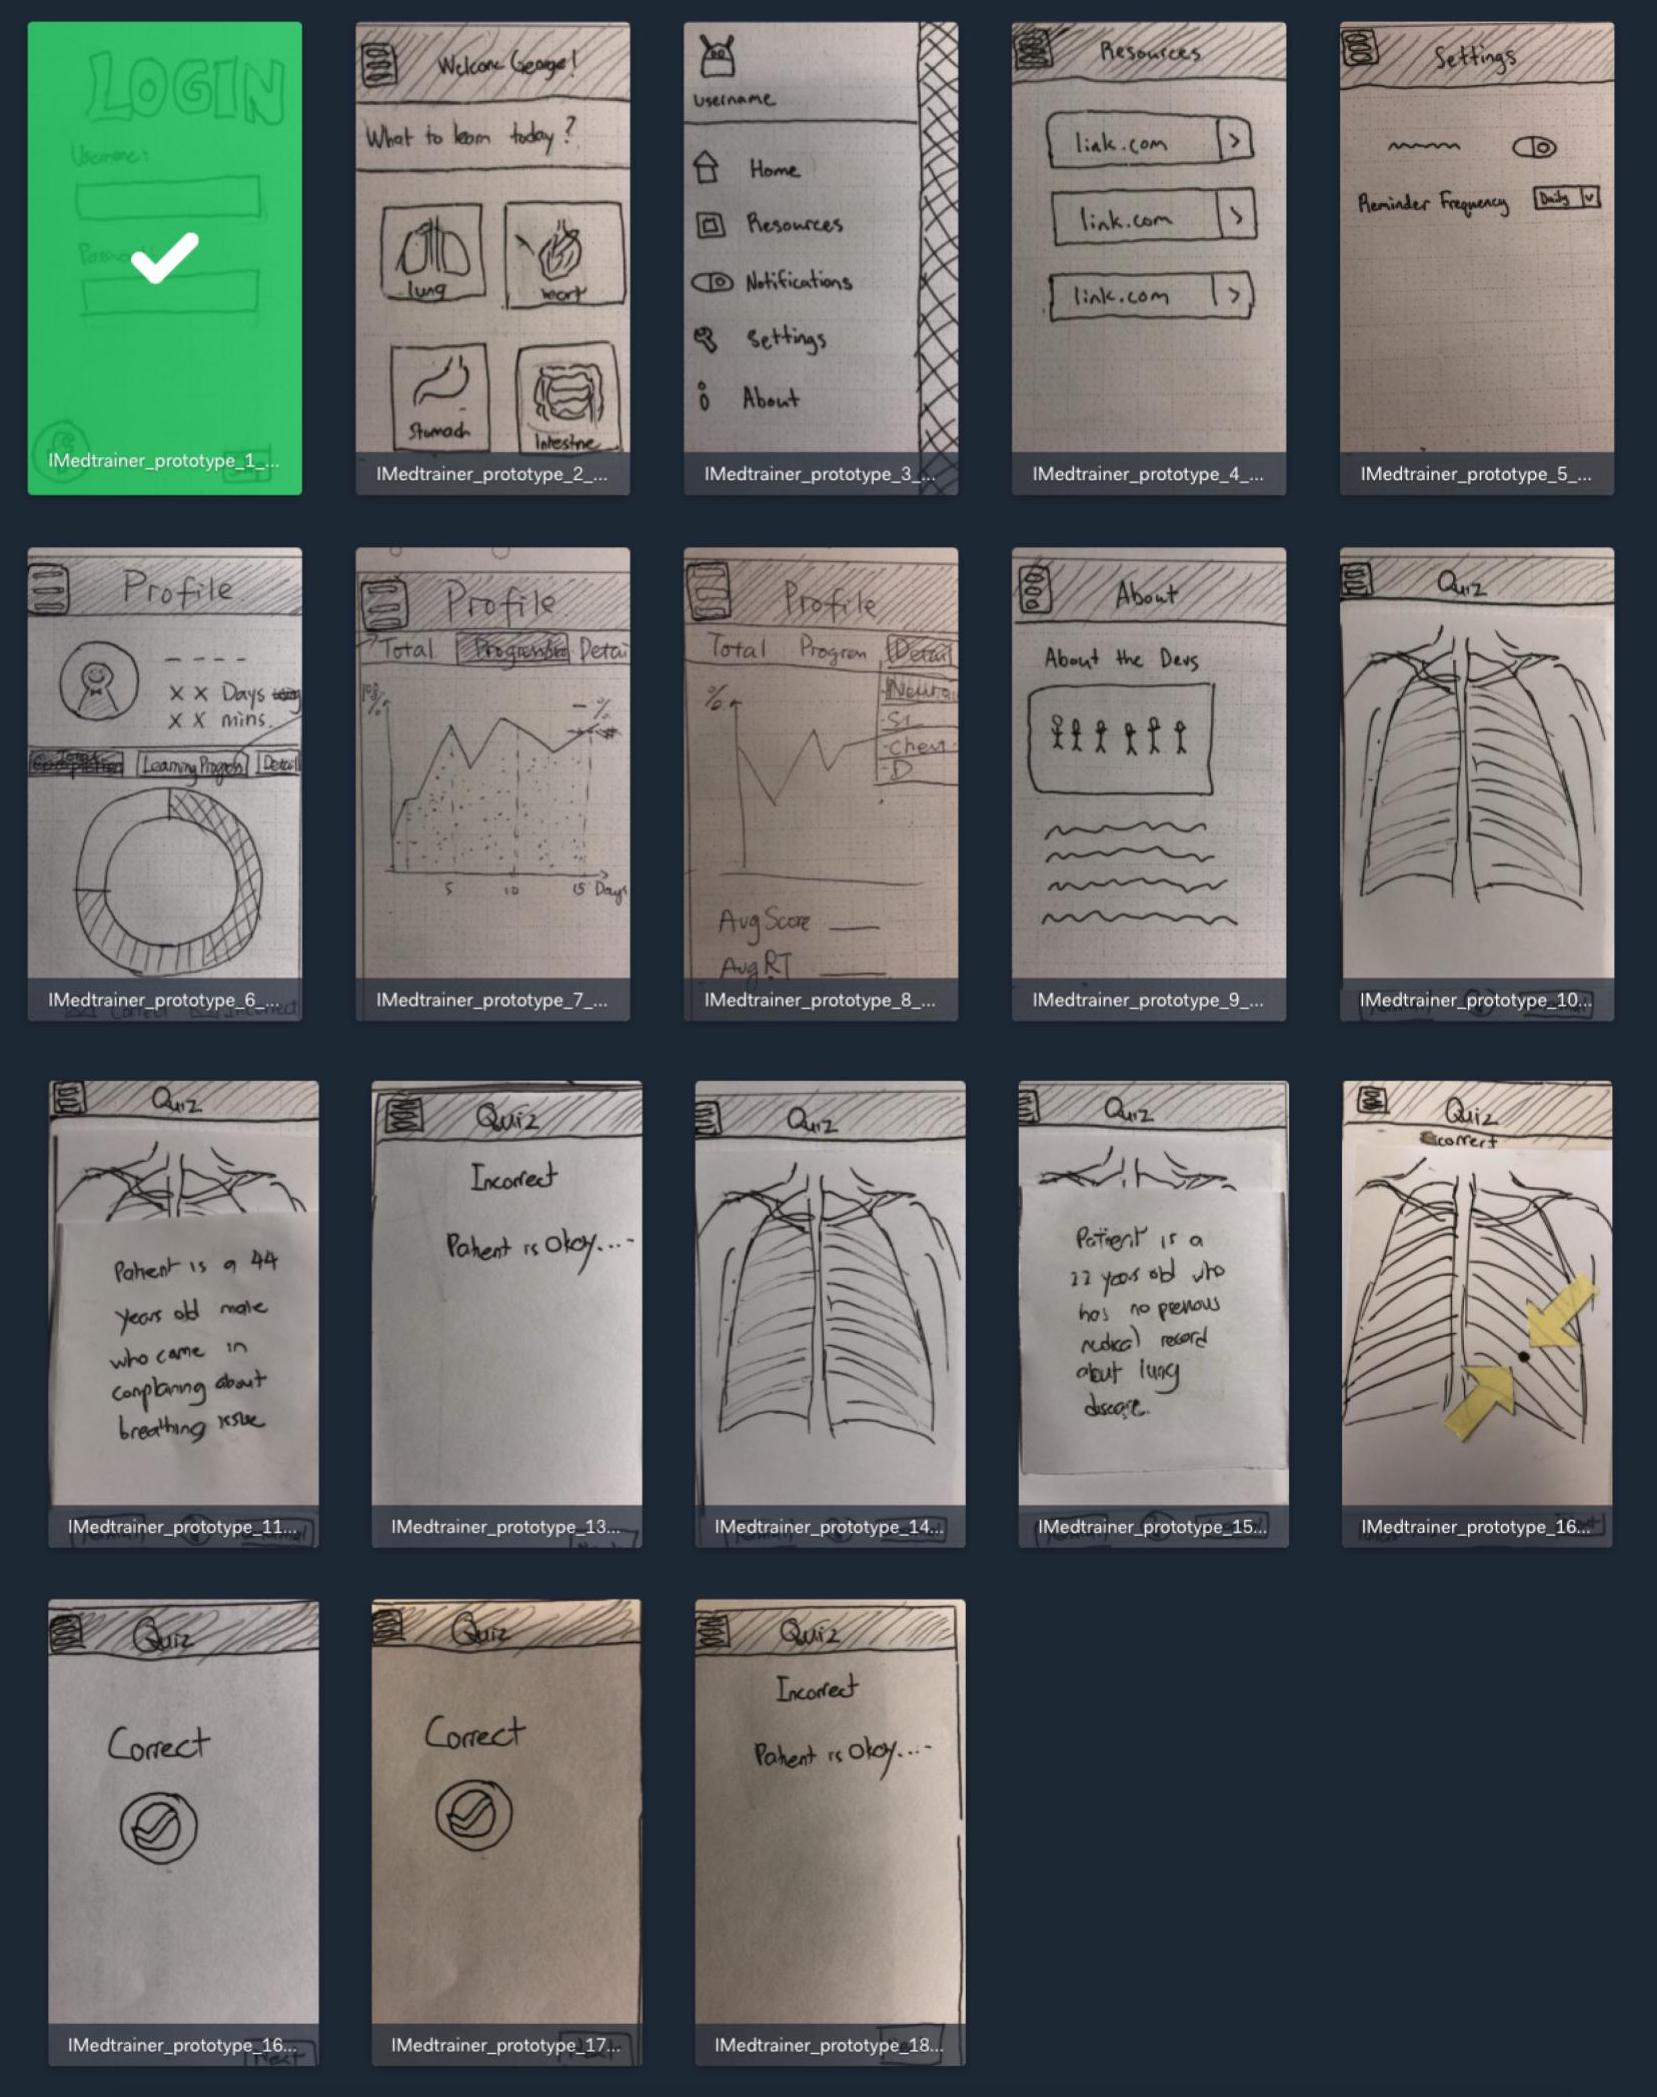 LOGIN
Username:
IMedtrainer_prototype_1_...
Welcome George!
What to learn today?
lung
heart
Stomach
Intestine
IMedtrainer_prototype_2_...
Username
Home
Resources
Notifications
Settings
About
IMedtrainer_prototype_3_...
Resources
link.com >
link.com >
link.com >
IMedtrainer_prototype_4_...
Settings
Reminder Frequency Daily v
IMedtrainer_prototype_5_...
Profile
X X Days
X X mins.
Learning Progress Detail
IMedtrainer_prototype_6_...
Profile
Total Detai
%
- %
5 10 15 Days
IMedtrainer_prototype_7_...
Profile
Total Progren Detail
%
Neuro
Chest
D
Avg Score
Avg RT
IMedtrainer_prototype_8_...
About
About the Devs
IMedtrainer_prototype_9_...
Quiz
IMedtrainer_prototype_10...
Quiz
Patient is a 44
years old male
who came in
complaning about
breathing issue
IMedtrainer_prototype_11...
Quiz
Incorrect
Patient is Okay....
IMedtrainer_prototype_13...
Quiz
IMedtrainer_prototype_14...
Quiz
Patient is a
22 years old who
has no previous
medical record
about lung
disease.
IMedtrainer_prototype_15...
Quiz
correct
IMedtrainer_prototype_16...
Quiz
Correct
Next
IMedtrainer_prototype_16...
Quiz
Correct
IMedtrainer_prototype_17...
Quiz
Incorrect
Patient is Okay....
IMedtrainer_prototype_18...